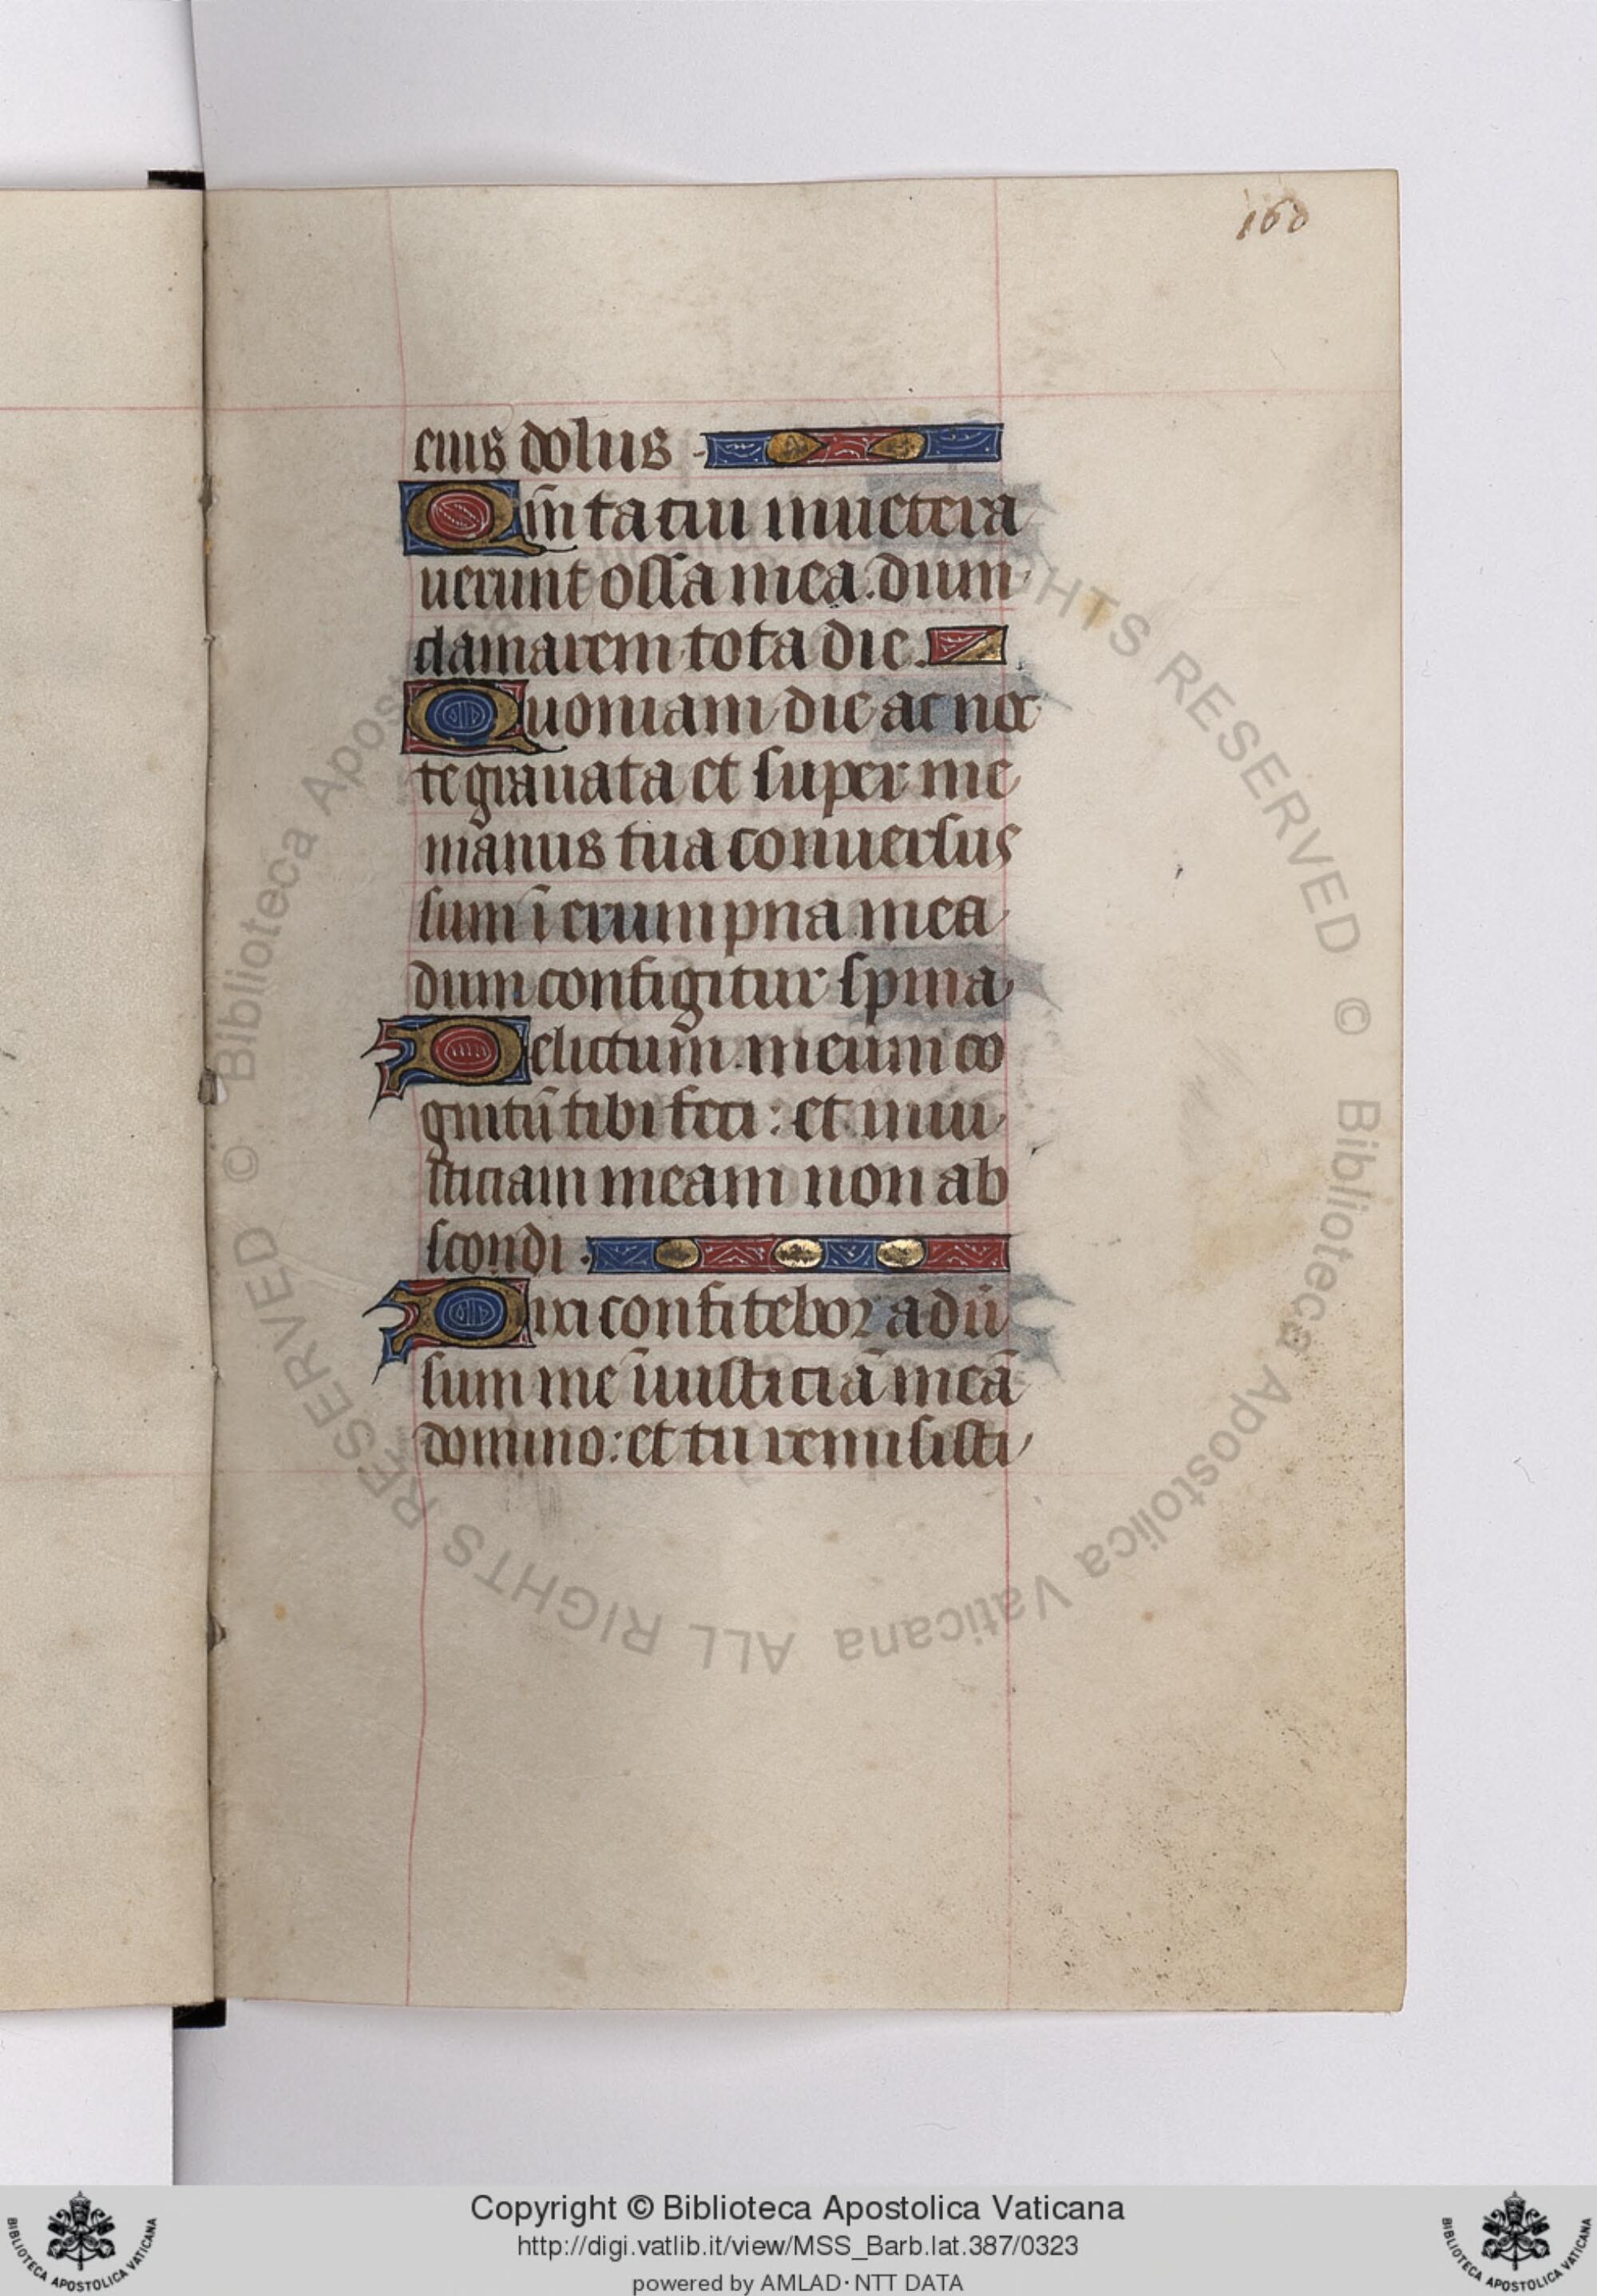 160
eius dolus.
Qm̄ tacui inuetera
uerunt ossa mea. dum
clamarem tota die.
Quoniam die ac noc
te grauata et super me
manus tua conuersus
sum ī erumpna mea
dum configitur spina
Delictum meum co
gnitū tibi feci: et iniu
sticiam meam non ab
scondi.
Dixi confitebor aduer
sum me iniusticiā meā
domino: et tu remisisti
© Biblioteca Apostolica Vaticana ALL RIGHTS RESERVED © Biblioteca Apostolica Vaticana ALL RIGHTS RESERVED
Copyright © Biblioteca Apostolica Vaticana
http://digi.vatlib.it/view/MSS_Barb.lat.387/0323
powered by AMLAD·NTT DATA
BIBLIOTECA APOSTOLICA VATICANA
BIBLIOTECA APOSTOLICA VATICANA